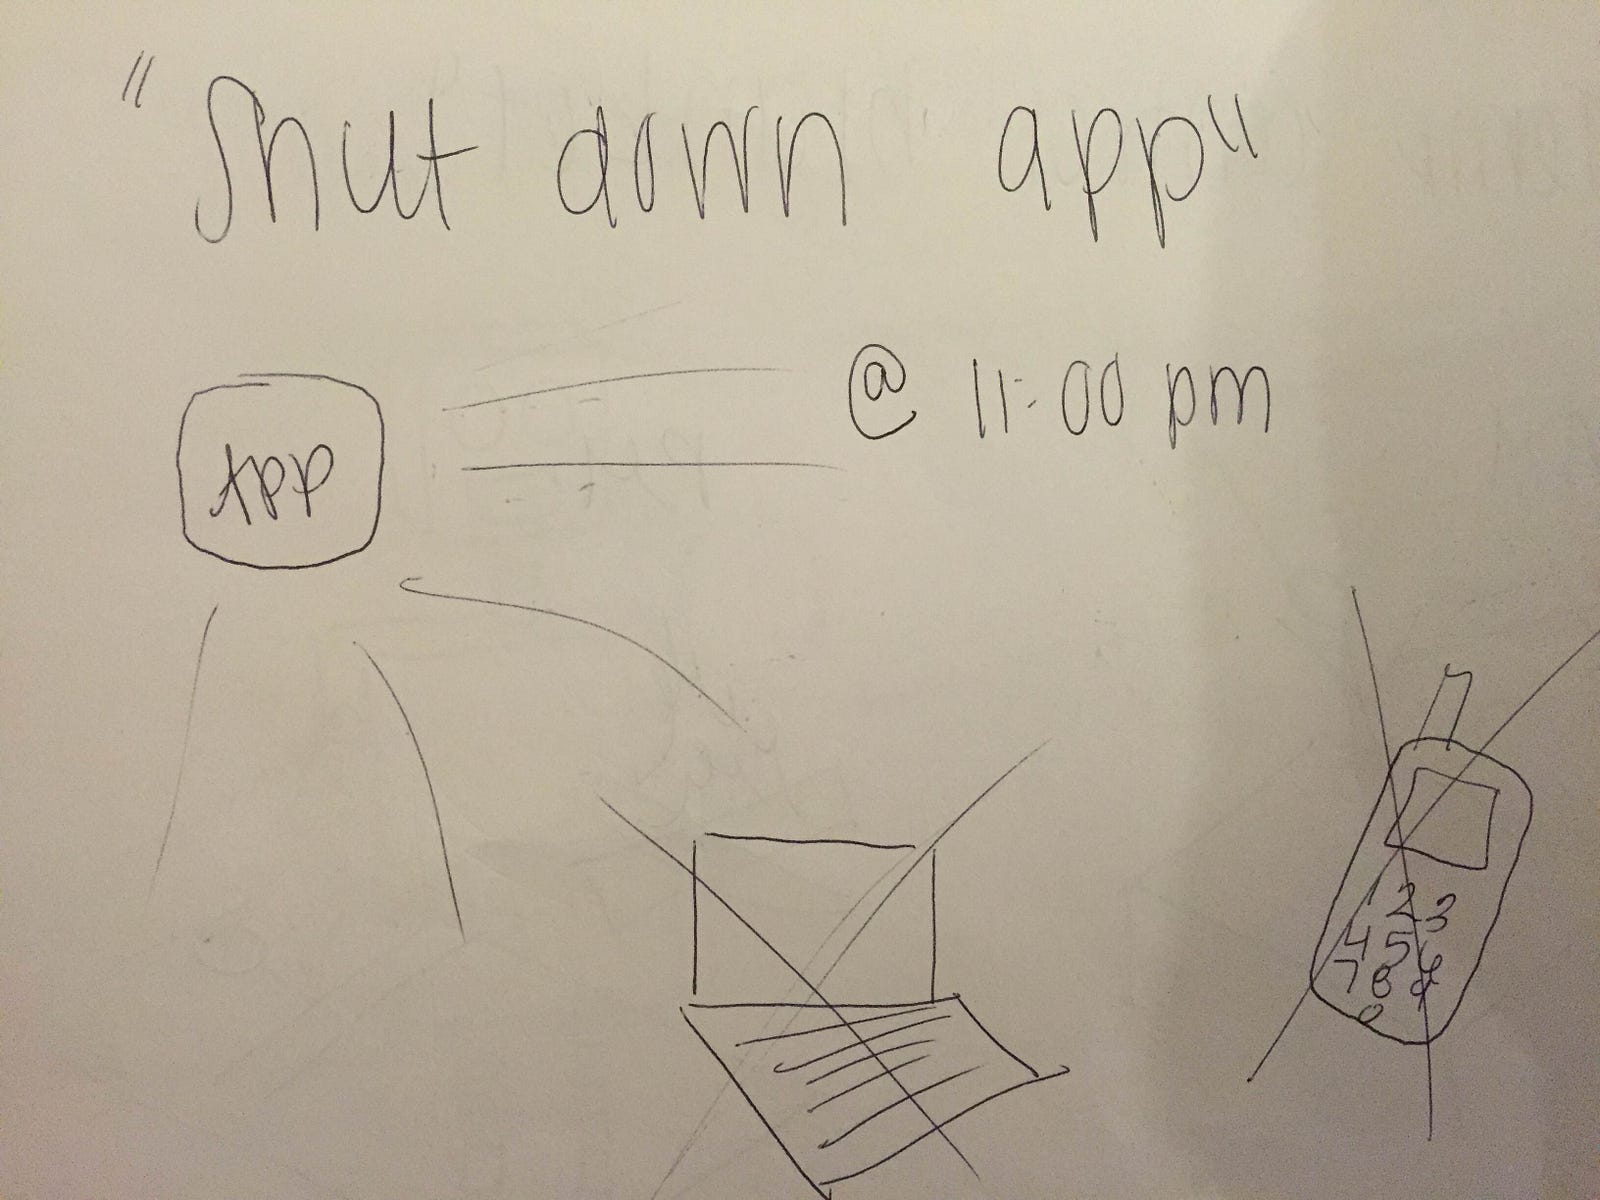 "Shut down app"
@ 11:00 pm
App
1 2 3
4 5 6
7 8 9
0